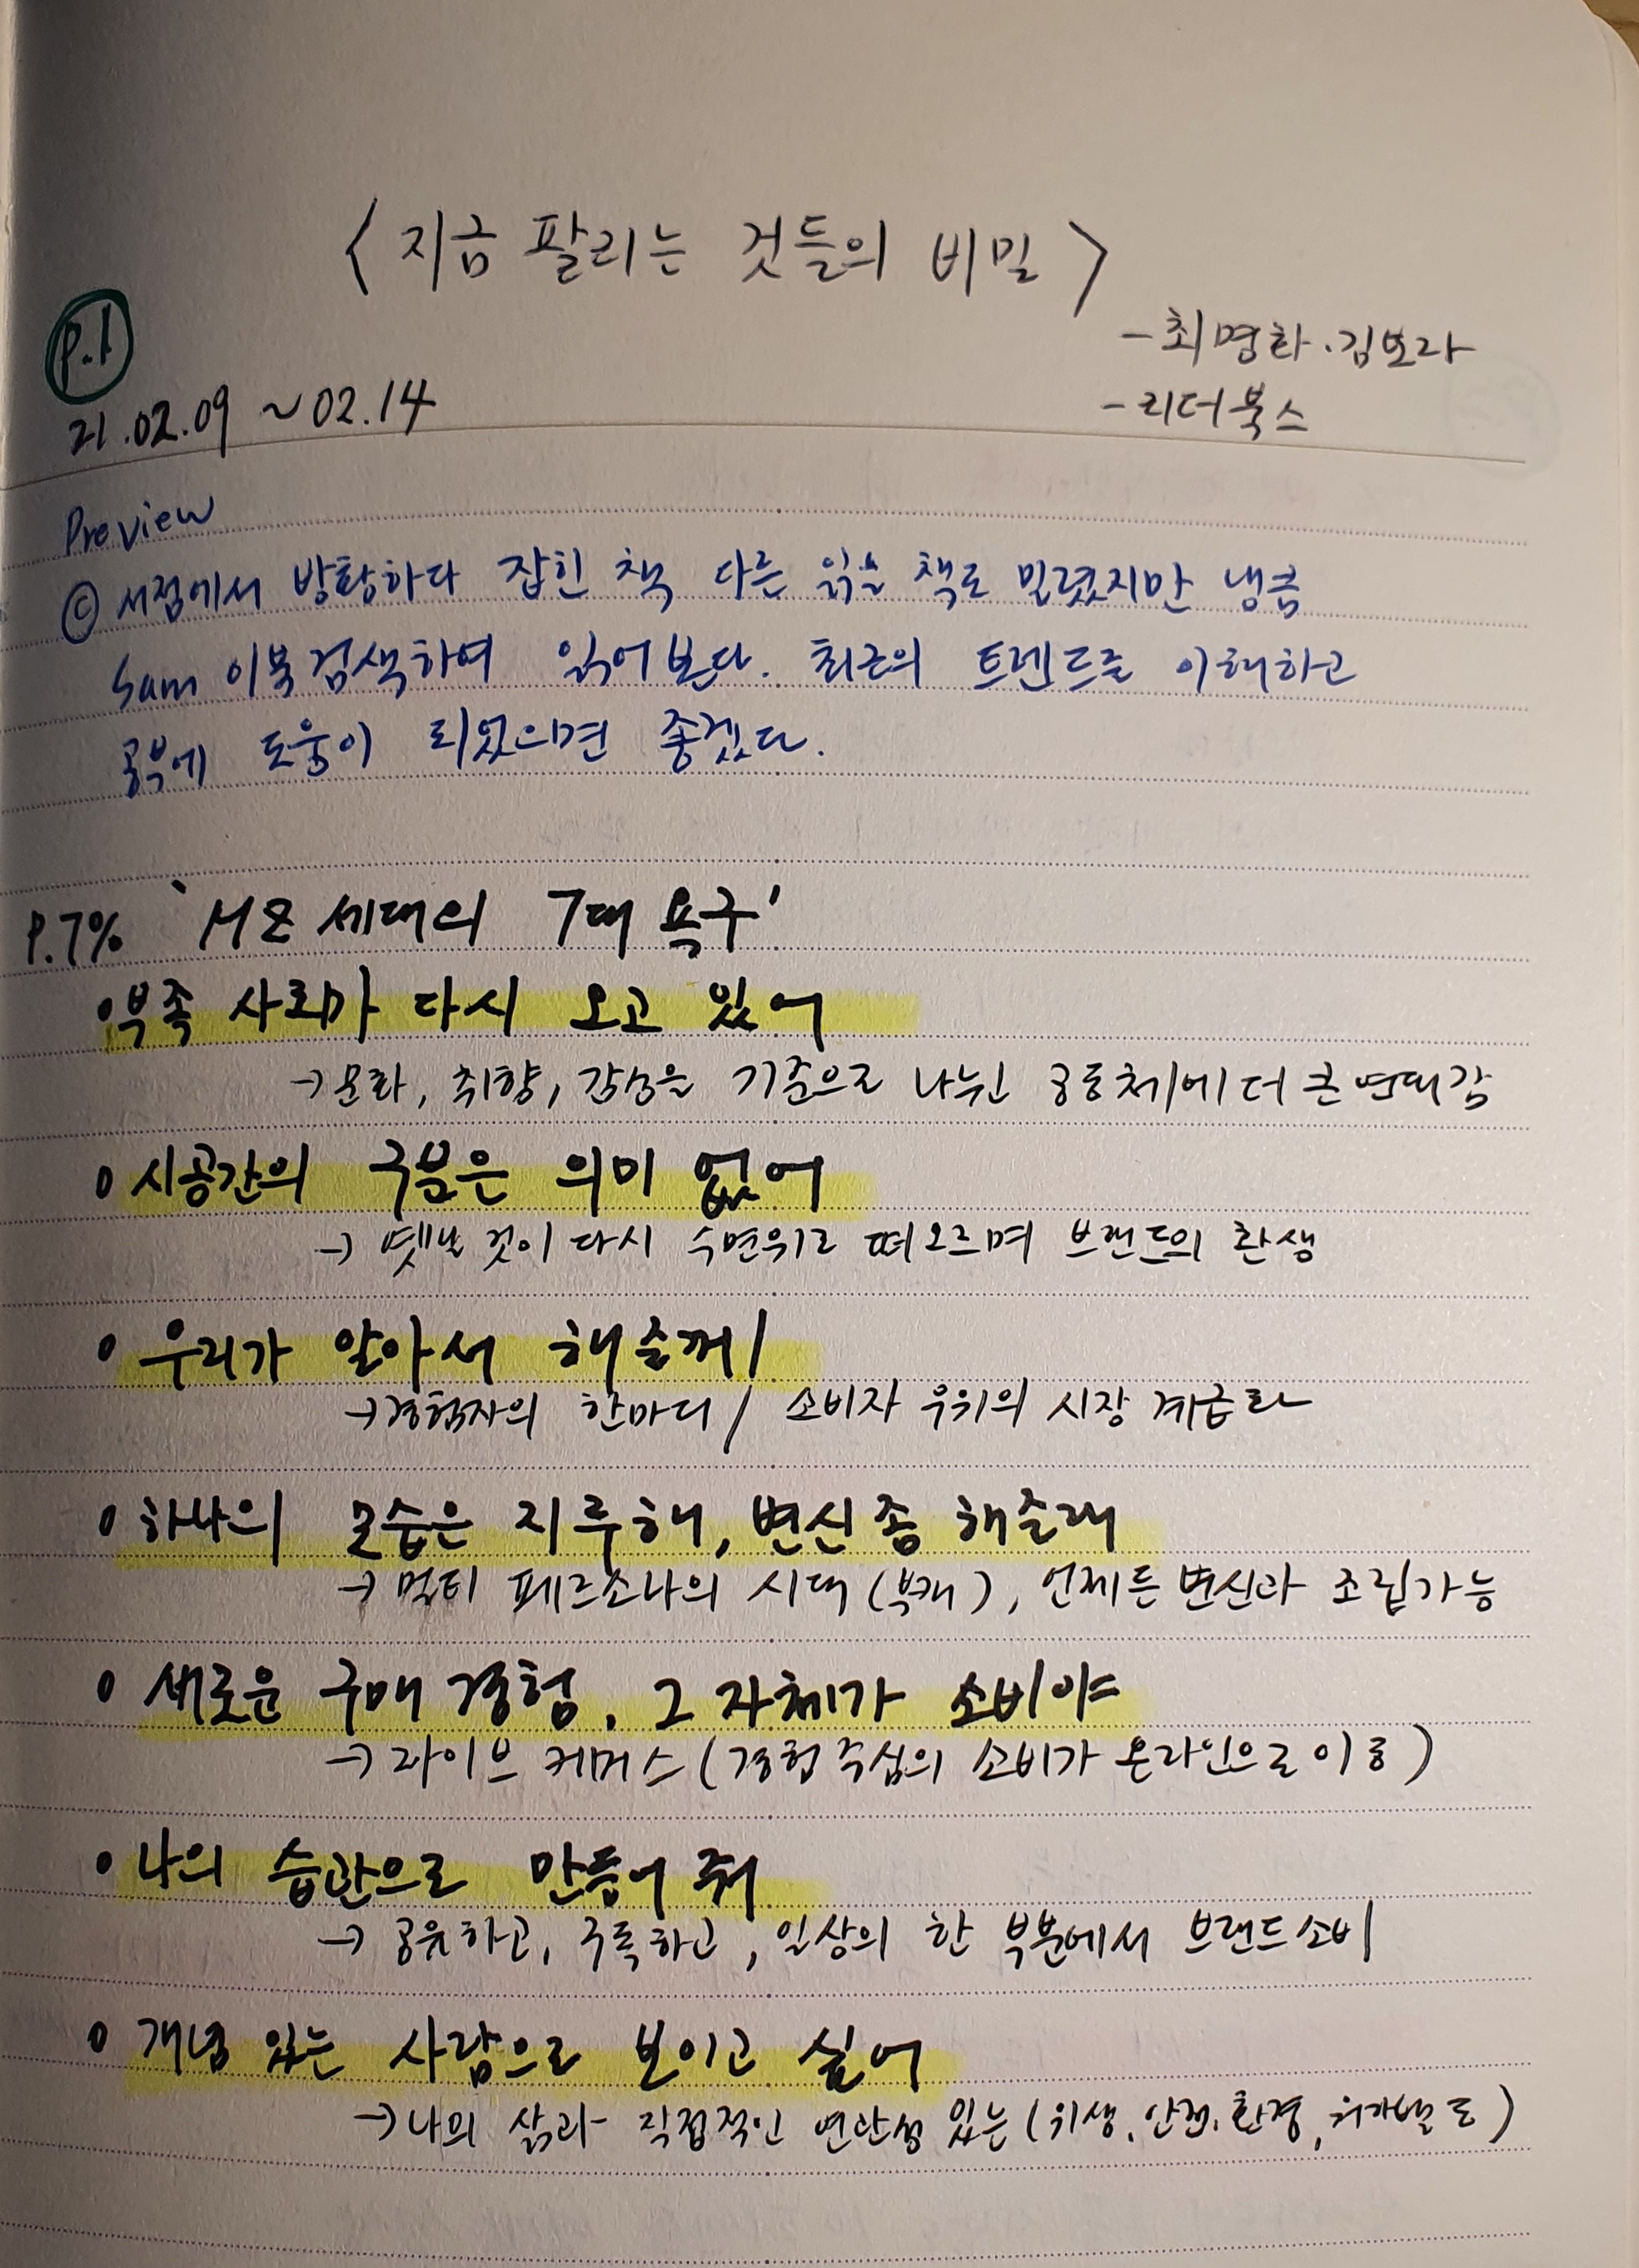 <지금 팔리는 것들의 비밀>
P.1
- 최명화·김보라
21.02.09 ~ 02.14
- 리더북스
Preview
ⓒ 서점에서 방황하다 잡힌 책 다른 읽을 책로 밀렸지만 냉큼
Sam 이북 검색하여 읽어본다. 최근의 트렌드를 이해하고
공부에 도움이 되었으면 좋겠다.
P.7% 'MZ 세대의 7대 욕구'
• 부족 사회가 다시 오고 있어
→ 문화, 취향, 감성을 기준으로 나뉜 공동체에 더 큰 연대감
• 시공간의 구분은 의미 없어
→ 옛날 것이 다시 수면위로 떠오르며 브랜드의 환생
• 우리가 알아서 해줄께
→ 경험자의 한마디 / 소비자 우위의 시장 계급화
• 하나의 모습은 지루해, 변신 좀 해줄래
→ 멀티 페르소나의 시대 (부캐), 언제든 변신과 조립가능
• 새로운 구매 경험, 그 자체가 소비야
→ 라이브 커머스 (경험 중심의 소비가 온라인으로 이동)
• 나의 습관으로 만들어 줘
→ 공유하고, 구독하고, 일상의 한 부분에서 브랜드 소비
• 개념 있는 사람으로 보이고 싶어
→ 나의 삶과 직접적인 연관성 있는 (위생, 안전, 환경,